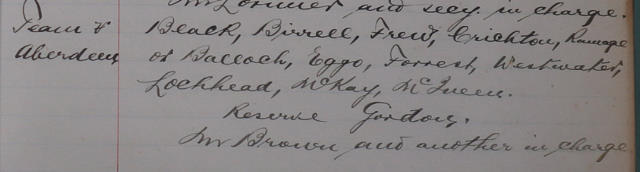 Mr Lorimer and secy. in charge.
Team v Black, Birrell, Frew, Crichton, Ramage
Aberdeen or Balloch, Eggo, Forrest, Westwater,
Lochhead, McKay, McQueen.
Reserve Gordon.
Mr Brown and another in charge